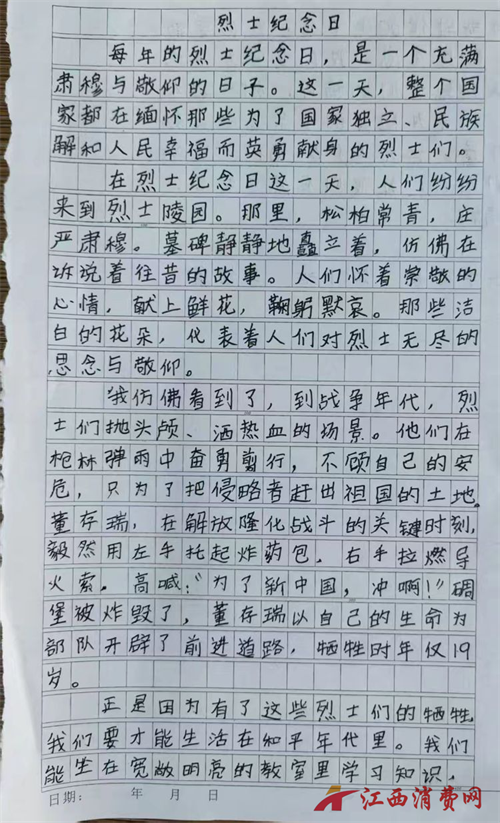 烈士纪念日
每年的烈士纪念日，是一个充满
肃穆与敬仰的日子。这一天，整个国
家都在缅怀那些为了国家独立、民族
解和人民幸福而英勇献身的烈士们。
在烈士纪念日这一天，人们纷纷
来到烈士陵园。那里，松柏常青，庄
严肃穆。墓碑静静地矗立着，仿佛在
诉说着往昔的故事。人们怀着崇敬的
心情，献上鲜花，鞠躬默哀。那些洁
白的花朵，代表着人们对烈士无尽的
思念与敬仰。
我仿佛看到了，到战争年代，烈
士们抛头颅、洒热血的场景。他们在
枪林弹雨中奋勇前行，不顾自己的安
危，只为了把侵略者赶出祖国的土地。
董存瑞，在解放隆化战斗的关键时刻，
毅然用左手托起炸药包，右手拉燃导
火索。高喊：“为了新中国，冲啊！”碉
堡被炸毁了，董存瑞以自己的生命为
部队开辟了前进道路，牺牲时年仅19
岁。
正是因为有了这些烈士们的牺牲，
我们要才能生活在和平年代里。我们
能坐在宽敞明亮的教室里学习知识，
日期： 年 月 日
江西消费网